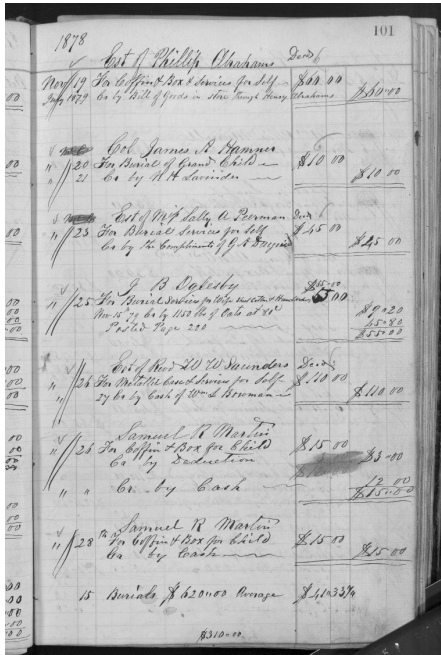 101
1878
Est of Phillip Abrahams Decd
Nov 19 For Coffin & Box & Services for Self $60.00
1879 Cr by Bill of Goods in store through Henry Abrahams $60.00
Col James A Hamner
" 20 For Burial of Grand Child $10 00
" 21 Cr by N H Lavinder $10 00
Est of Sally A Peerman Decd
" 23 For Burial Services for Self $45 00
Cr by the Compliments of G A $45 00
J B Oglesby $55.00
" 25 For Burial Services for Wife
Nov 15 79 Cr by 1150 lbs of Oats at 80c $9.20
Posted Page 220 45.80
$55.00
Est of Revd W Saunders Decd
" 26 For Metallic Case & Services for Self $110 00
27 Cr by Cash of Wm S Bowman $110 00
Samuel R Martin
" 26 For Coffin & Box for Child $15 00
Cr by Deduction $3.00
" " Cr by Cash 12 00
$15.00
Samuel R Martin
" 28th For Coffin & Box for Child $15 00
Cr by Cash $15 00
15 Burials $620.00 Average $41.33¼
$310.00